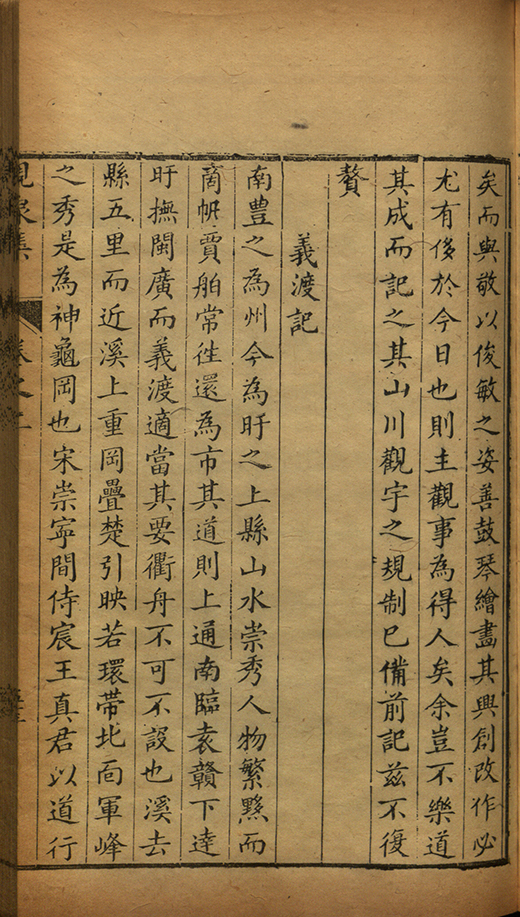 矣而與敬以俊敏之姿善鼓琴繪畫其興創改作必
尤有俟於今日也則主觀事為得人矣余豈不樂道
其成而記之其山川觀宇之規制已備前記兹不復
贅
義渡記
南豊之為州今為盱之上縣山水崇秀人物繁黟而
商帆賈舶常徃還為市其道則上通南臨袁贛下達
盱撫閩廣而義渡適當其要衢舟不可不設也溪去
縣五里而近溪上重岡疊楚引映若環帶北面軍峰
之秀是為神龜岡也宋崇寧間侍宸王真君以道行
峴泉集
卷之三